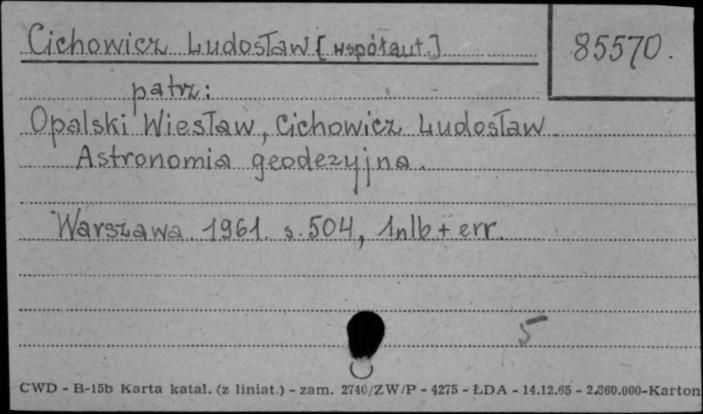 Cichowicz Ludosław [współaut.]
85570.
patrz:
Opalski Wiesław, Cichowicz Ludosław.
Astronomia geodezyjna.
Warszawa. 1961. s. 504, 1nlb + err.
5
CWD - B-15b Karta katal. (z liniat.) - zam. 2740/ZW/P - 4275 - ŁDA - 14.12.65 - 2.860.000-Karton